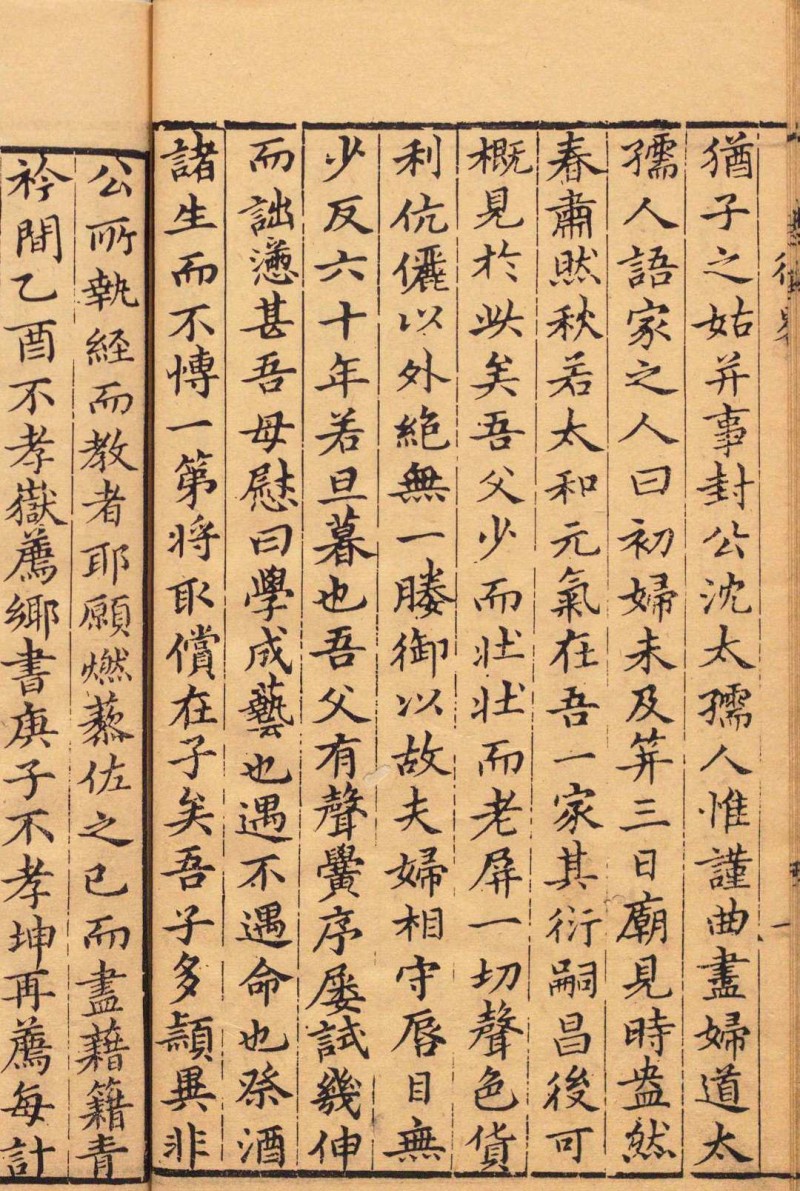 猶子之姑并事封公沈太孺人惟謹曲盡婦道太
孺人語家之人曰初婦未及筓三日廟見時盎然
春肅然秋若太和元氣在吾一家其衍嗣昌後可
概見於此矣吾父少而壯壯而老屏一切聲色貨
利伉儷以外絶無一媵御以故夫婦相守唇目無
少反六十年若旦暮也吾父有聲黌序屡試幾伸
而詘懣甚吾母慰曰學成藝也遇不遇命也祭酒
諸生而不愽一第将取償在子矣吾子多頴異非
公所執經而教者耶願燃藜佐之已而盡藉籍青
衿間乙酉不孝嶽薦鄉書庚子不孝坤再薦每計